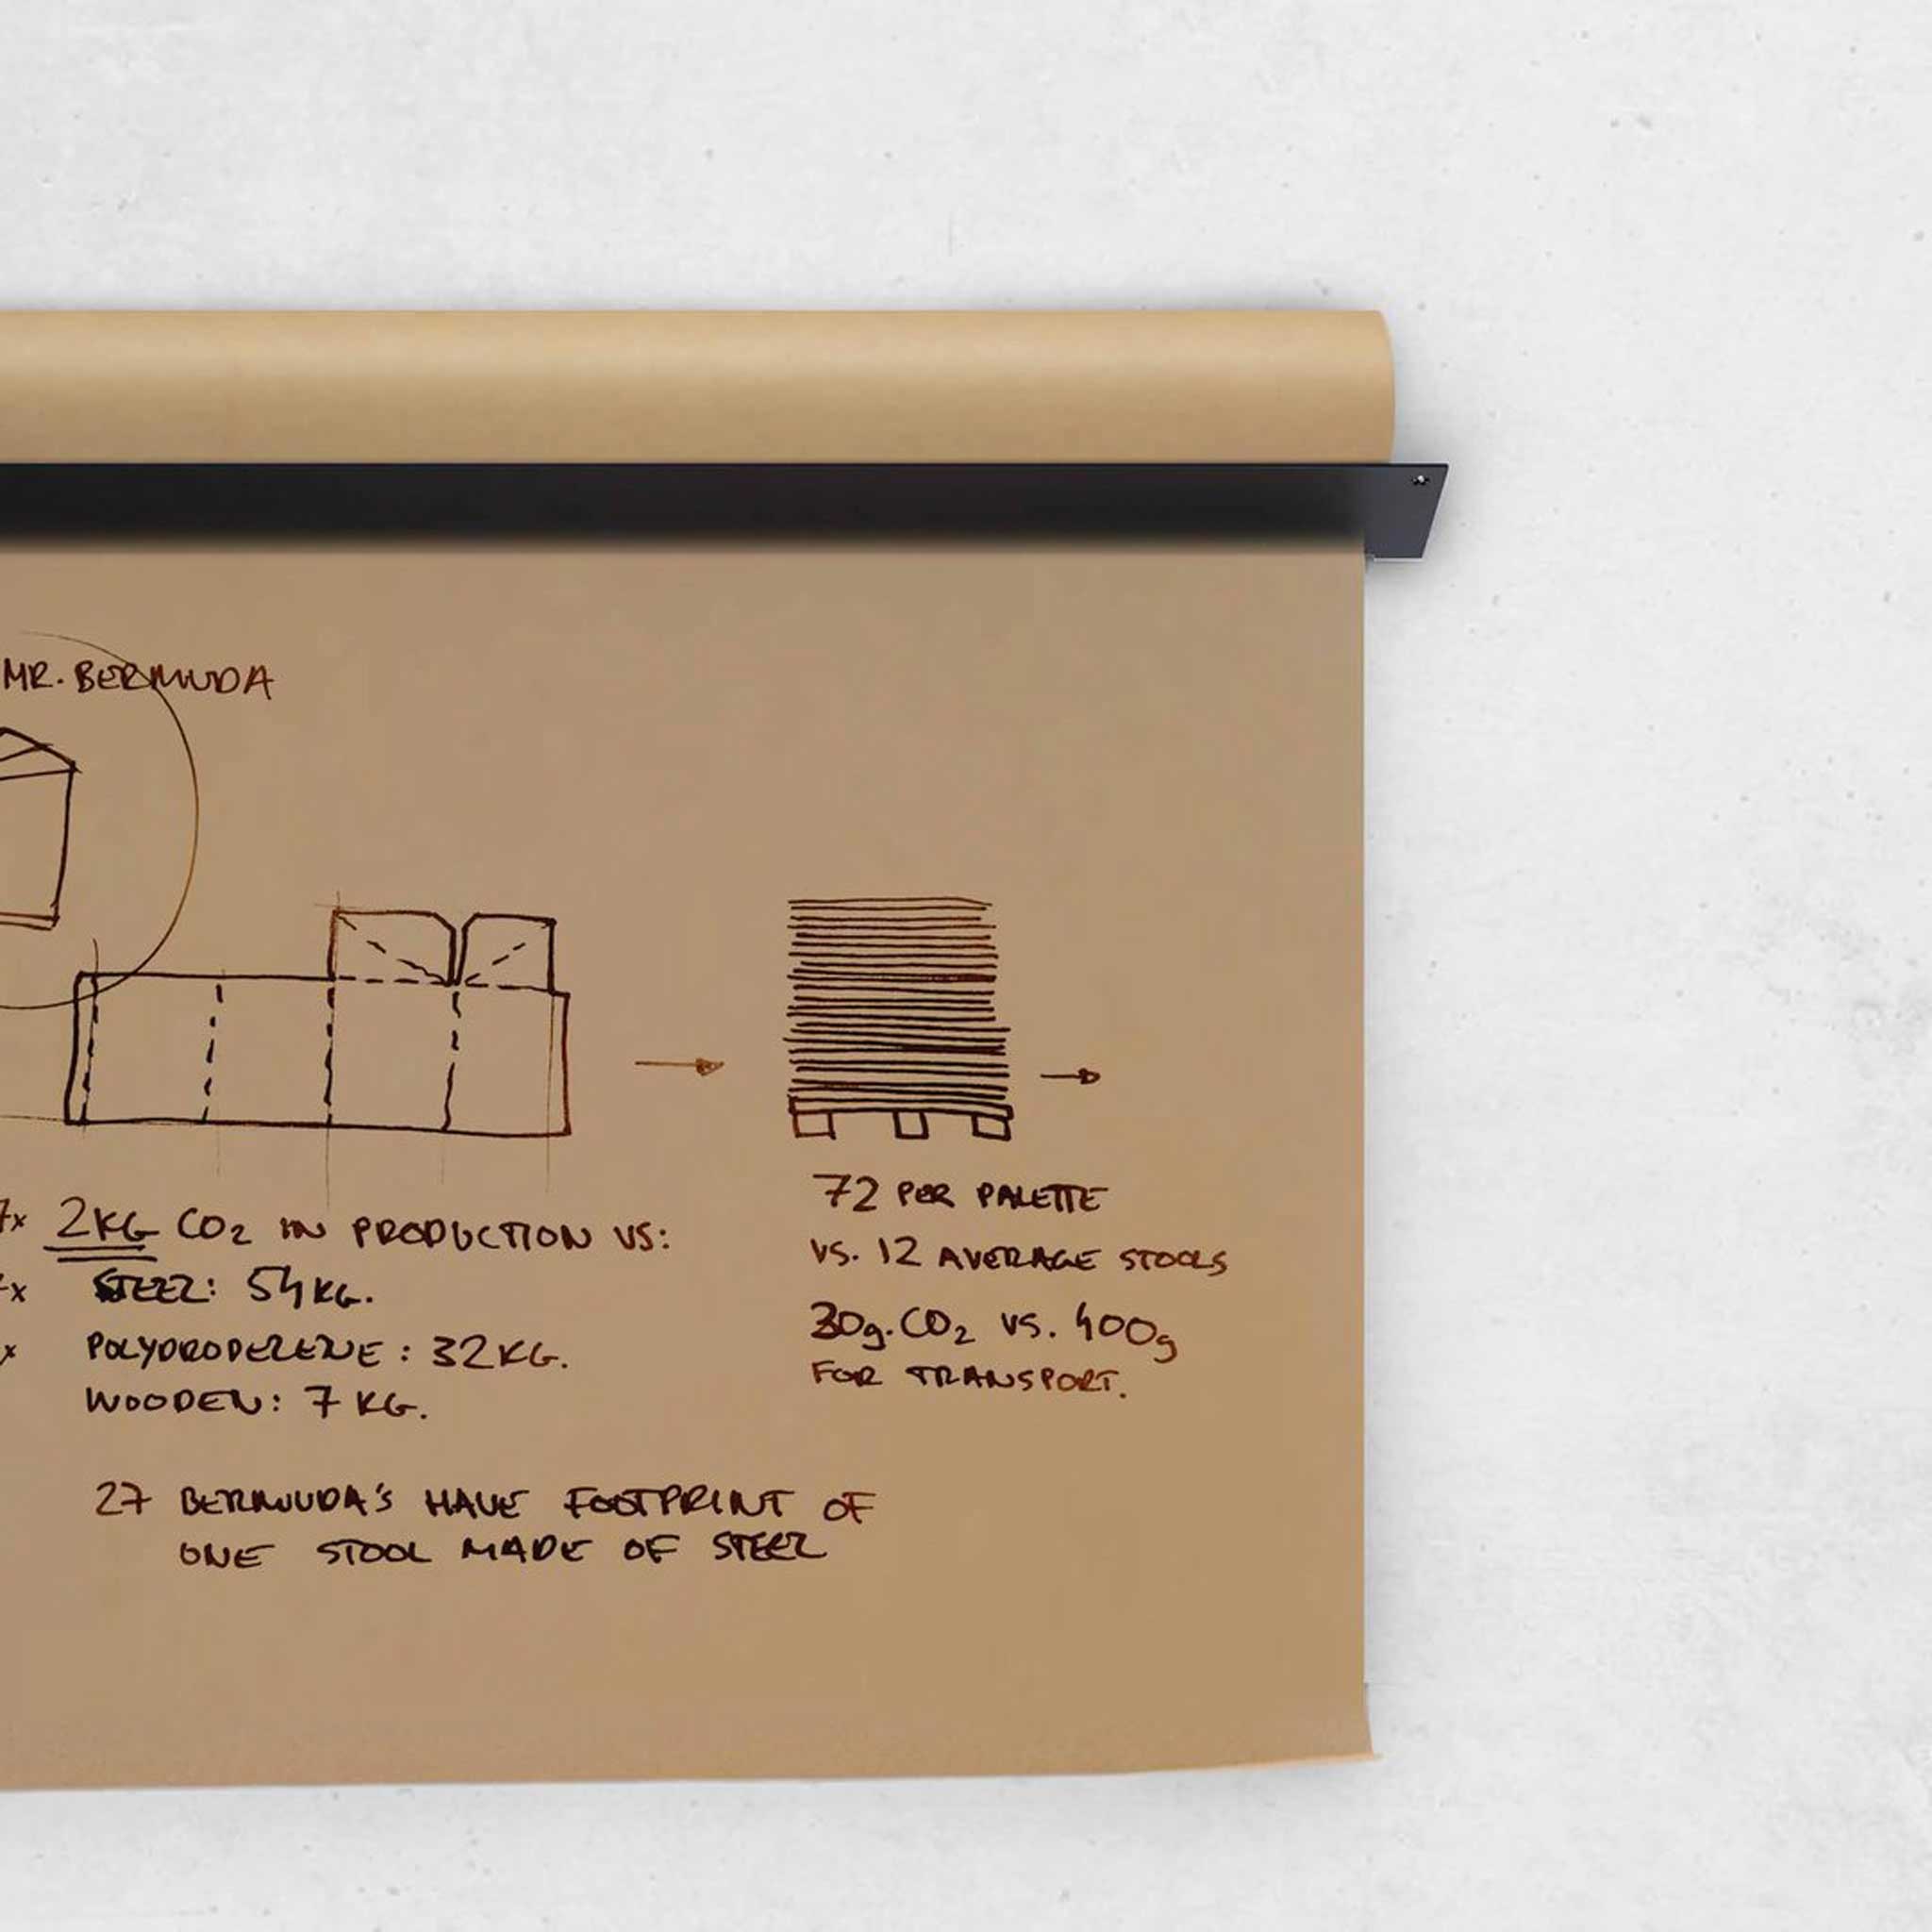 MR. BERMUDA
7x 2KG CO2 IN PRODUCTION VS:
x STEEL: 54KG.
x POLYPROPELENE: 32KG.
WOODEN: 7 KG.
27 BERMUDA'S HAVE FOOTPRINT OF
ONE STOOL MADE OF STEEL
72 PER PALETTE
VS. 12 AVERAGE STOOLS
30g. CO2 VS. 400g
FOR TRANSPORT.